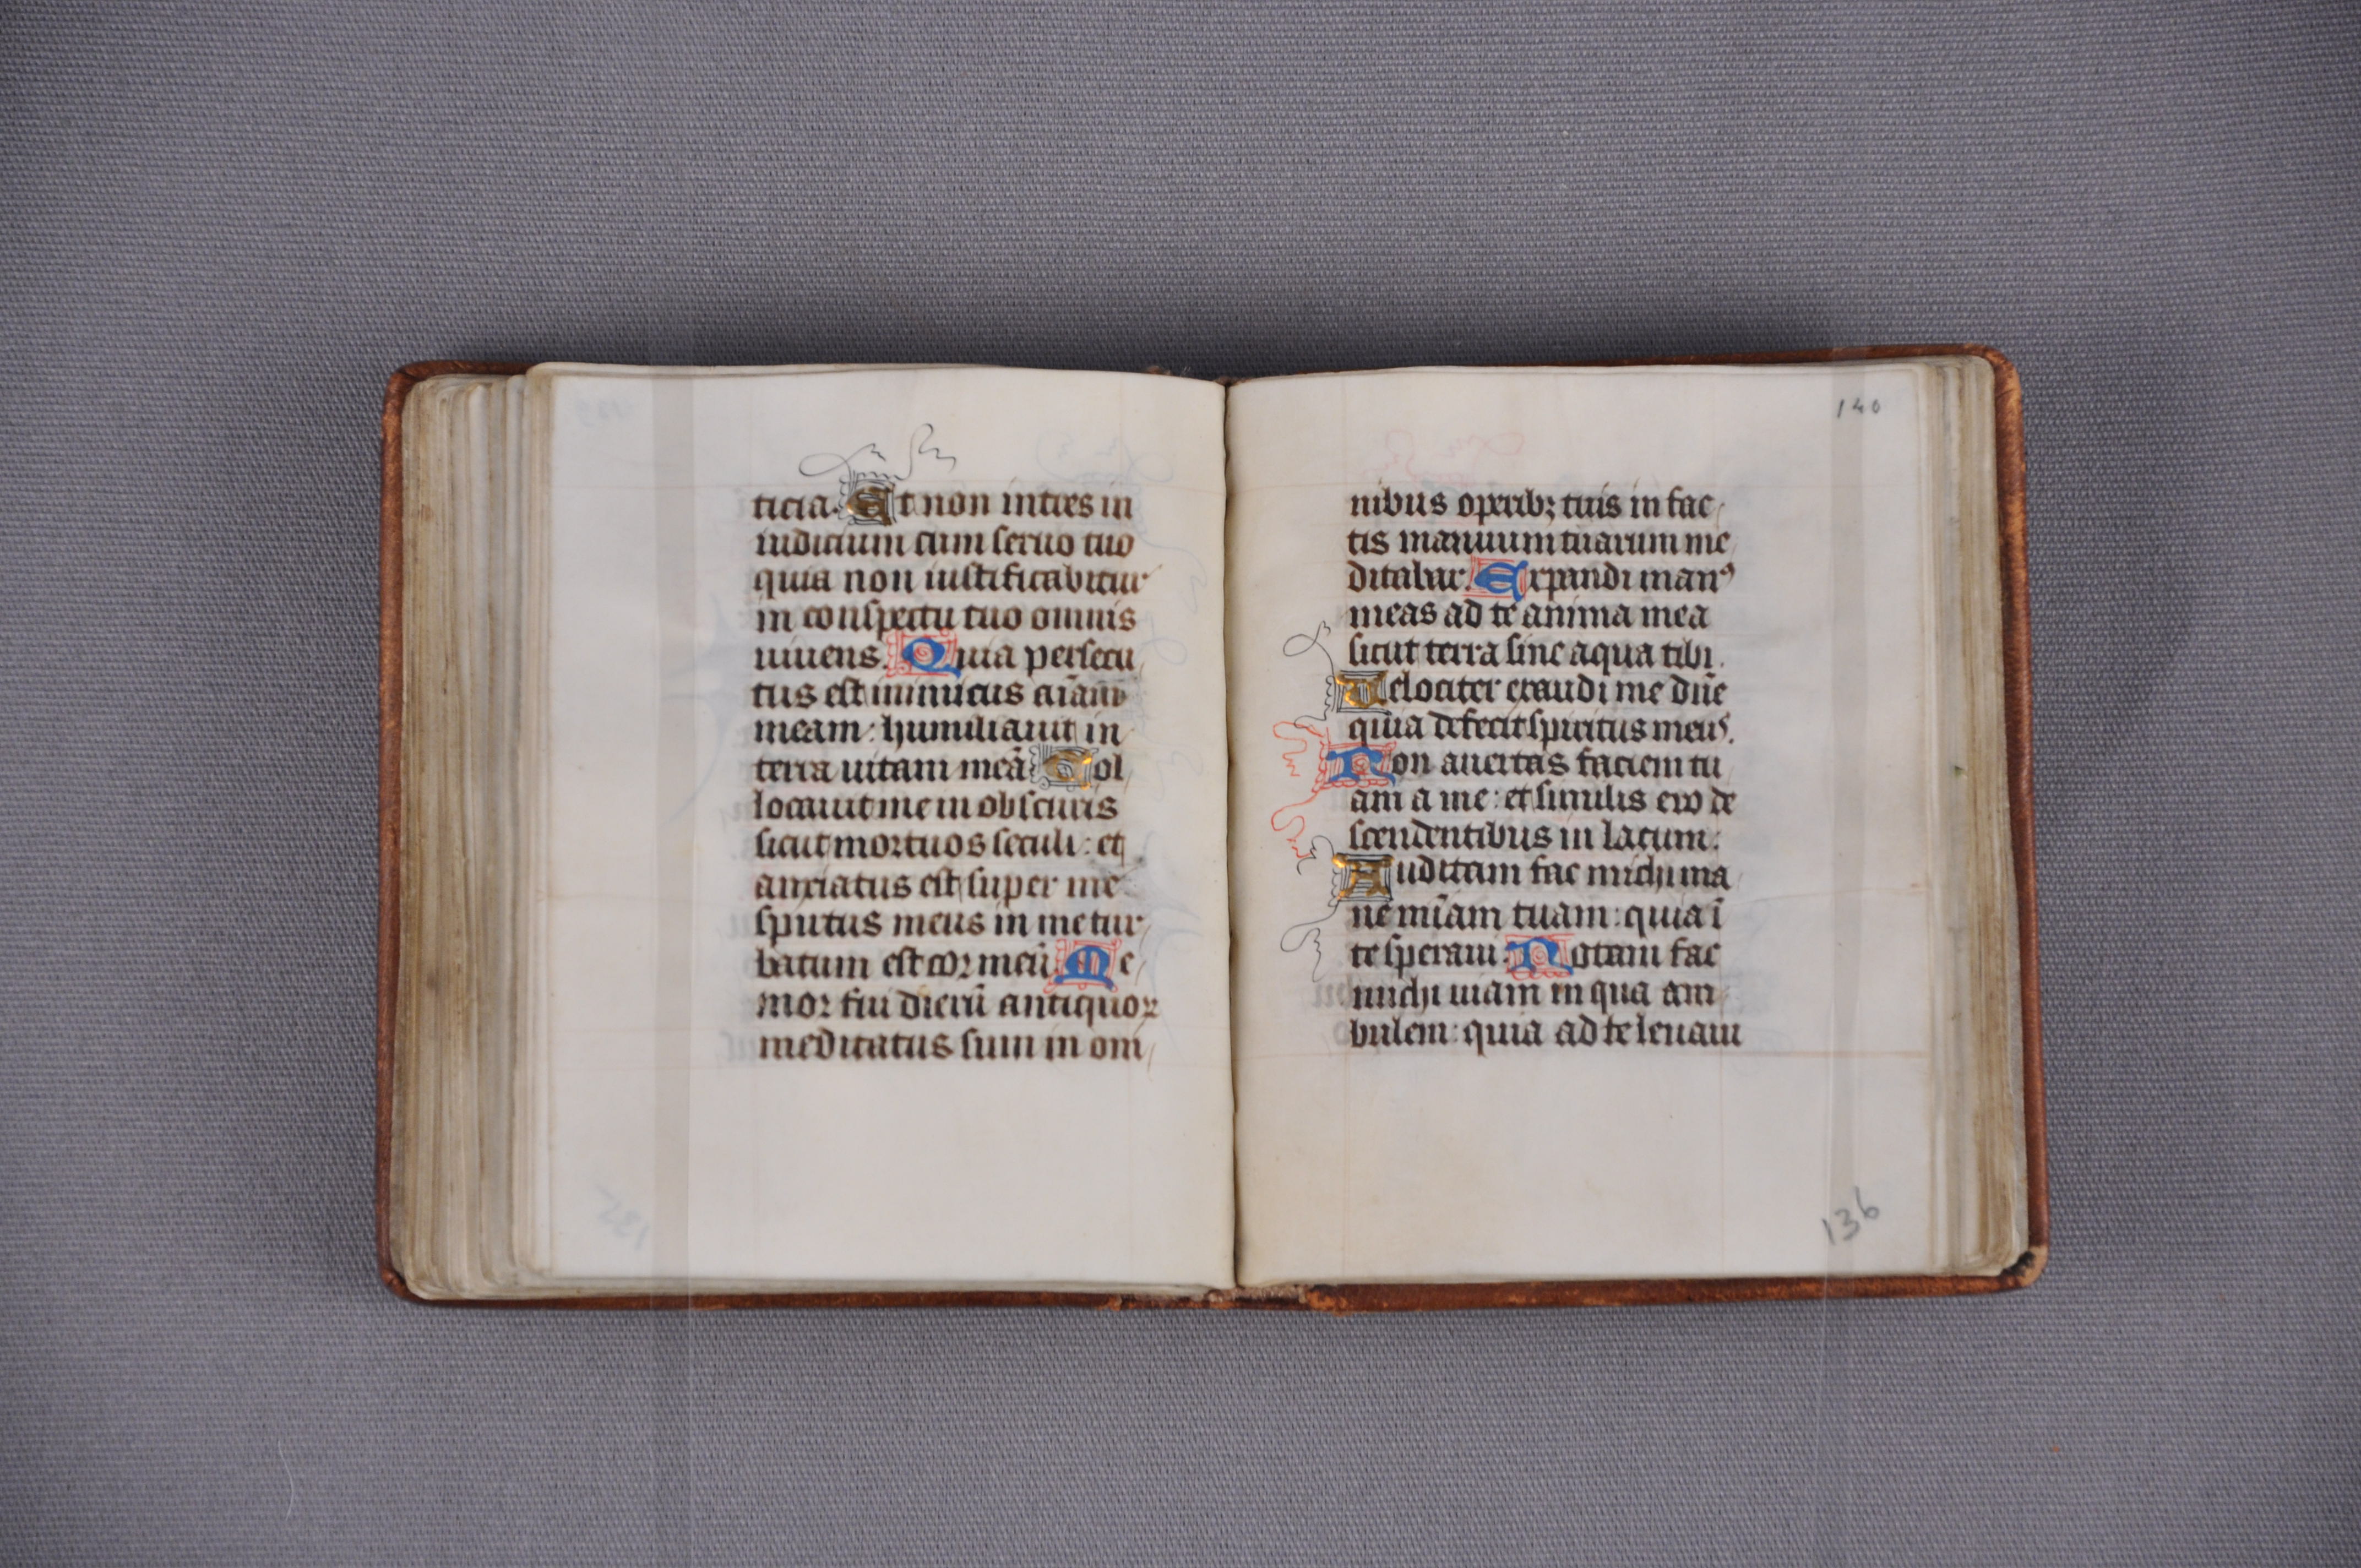 ticia. Et non intres in
iudicium cum seruo tuo
quia non iustificabitur
in conspectu tuo omnis
uiuens. Quia persecu
tus est inimicus aīam
meam: humiliauit in
terra uitam meā. Col
locauit me in obscuris
sicut mortuos seculi: et
anxiatus est super me
spiritus meus in me tur
batum est cor meū. Me
mor fui dierū antiquor
meditatus sum in om
140
nibus operibꝫ tuis in fac
tis manuum tuarum me
ditabar. Expandi manꝰ
meas ad te anima mea
sicut terra sine aqua tibi.
Uelociter exaudi me dn̄e
quia defecit spiritus meus.
Non auertas faciem tu
am a me: et similis ero de
scendentibus in lacum:
Auditam fac michi ma
ne mīam tuam: quia ī
te speraui. Notam fac
michi uiam in qua am
bulem: quia ad te leuaui
136